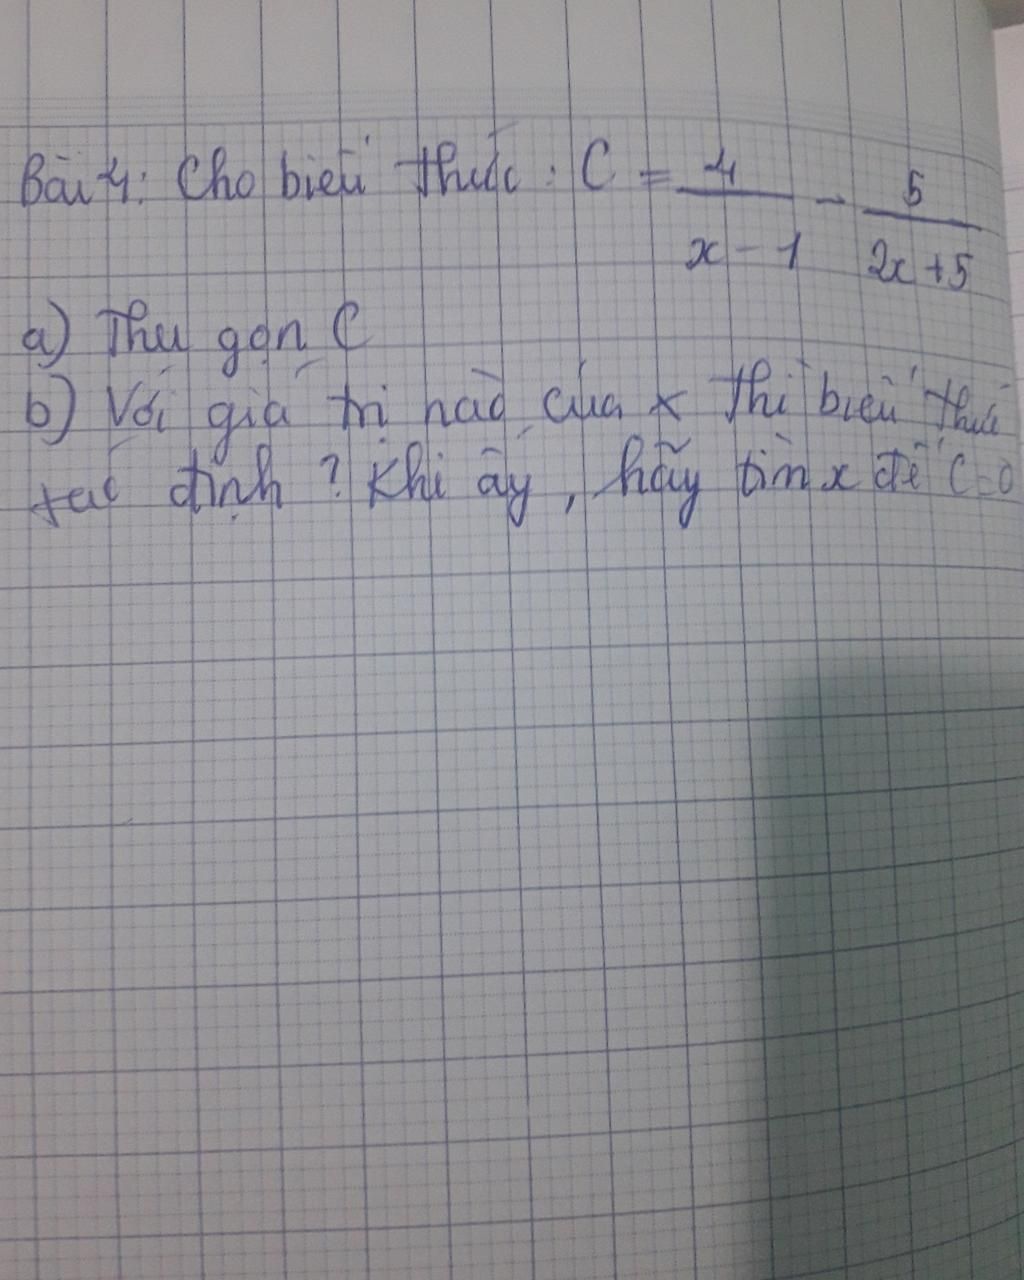 Bài 4: Cho biểu thức : C = 4/(x - 1) - 5/(2x + 5)
a) Thu gọn C
b) Với giá trị nào của x thì biểu thức
xác định ? Khi ấy , hãy tìm x để C = 0